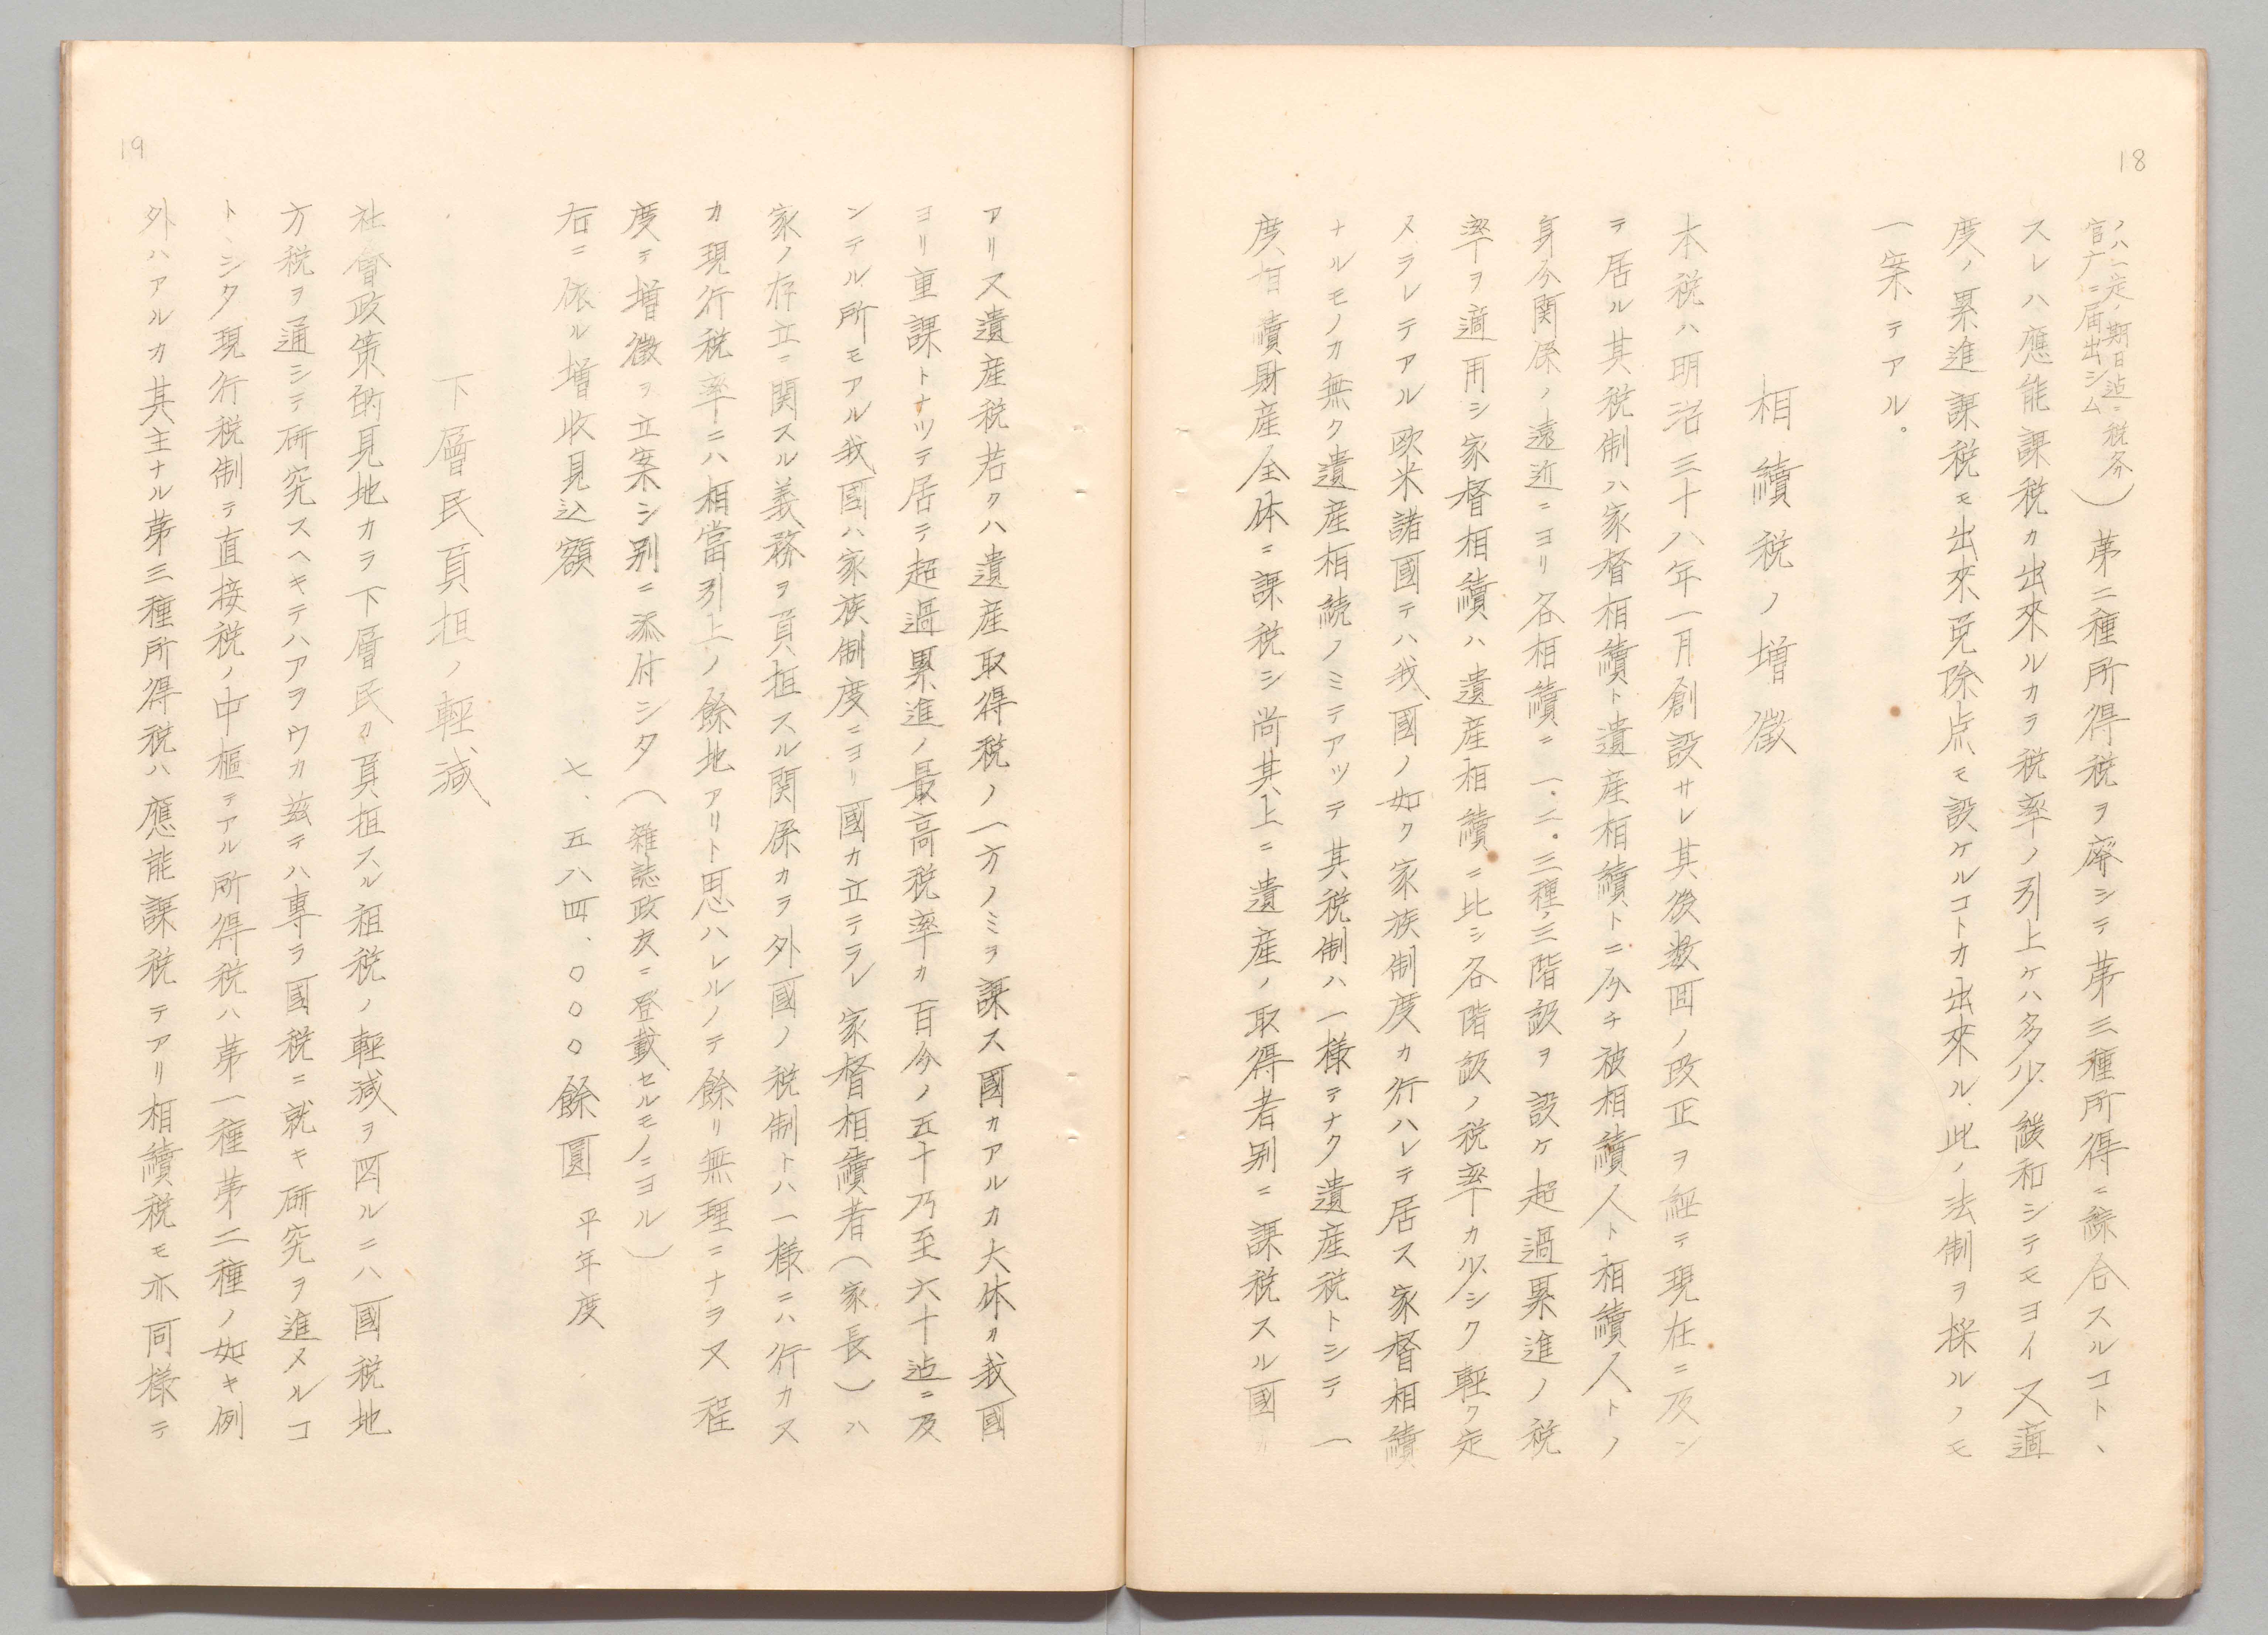 18
ノハ一定ノ期日迠ニ税务
官庁ニ届出シム）第二種所得税ヲ廃シテ第三種所得ニ綜合スルコト、
スレハ應能課税カ出來ルカラ税率ノ引上ケハ多少緩和シテモヨイ又適
度ノ累進課税モ出來免除点モ設ケルコトカ出來ル、此ノ法制ヲ採ルノモ
一案テアル。
相續税ノ増徴
本税ハ明治三十八年一月創設サレ其後数回ノ改正ヲ経テ現在ニ及ン
テ居ル其税制ハ家督相續ト遺産相續トニ分チ被相續人ト相續人トノ
身分関係ノ遠近ニヨリ各相續ニ一、二。三種ノ三階級ヲ設ケ超過累進ノ税
率ヲ適用シ家督相續ハ遺産相續ニ比シ各階級ノ税率カ少シク軽ク定
メラレテアル欧米諸國テハ我國ノ如ク家族制度カ行ハレテ居ス家督相續
ナルモノカ無ク遺産相続ノミテアツテ其税制ハ一様テナク遺産税トシテ一
度相續財産全体ニ課税シ尚其上ニ遺産ノ取得者別ニ課税スル國カ
アリ又遺産税若クハ遺産取得税ノ一方ノミヲ課ス國カアルカ大体カ我國
ヨリ重課トナツテ居テ超過累進ノ最高税率カ百分ノ五十乃至六十迠ニ及
ンテル所モアル我國ハ家族制度ニヨリ國カ立テラレ家督相續者（家長）ハ
家ノ存立ニ関スル義務ヲ負担スル関係カラ外國ノ税制トハ一様ニハ行カス
カ現行税率ニハ相當引上ノ餘地アリト思ハレルノテ餘リ無理ニナラヌ程
度テ増徴ヲ立案シ別ニ添付シタ（雑誌政友ニ登載セルモノニヨル）
右ニ依ル増收見込額　七、五八四、〇〇〇餘圓　平年度
下層民負担ノ輕減
社會政策的見地カラ下層民カ負担スル租税ノ輕減ヲ図ルニハ國税地
方税ヲ通シテ研究スヘキテハアヲウカ茲テハ專ラ國税ニ就キ研究ヲ進メルコ
トシタ現行税制テ直接税ノ中樞テアル所得税ハ第一種第二種ノ如キ例
外ハアルカ其主ナル第三種所得税ハ應能課税テアリ相續税モ亦同様テ
19